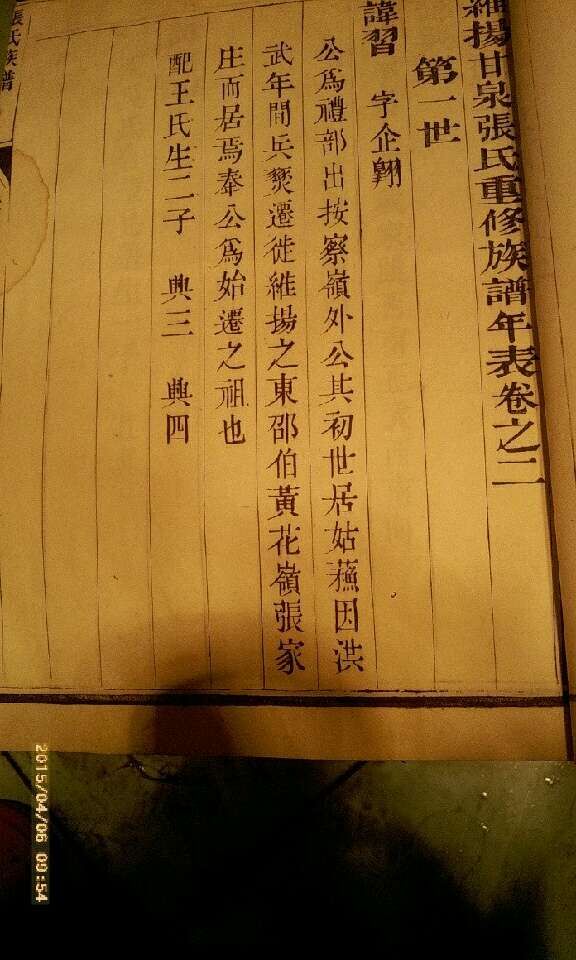 維揚甘泉張氏重修族譜年表卷之二
第一世
諱習 字企翺
公爲禮部出按察嶺外公其初世居姑蘓因洪
武年間兵燹遷徙維揚之東邵伯黃花嶺張家
庄而居焉奉公爲始遷之祖也
配王氏生二子 興三 興四
張氏族譜
2015/04/06 09:54